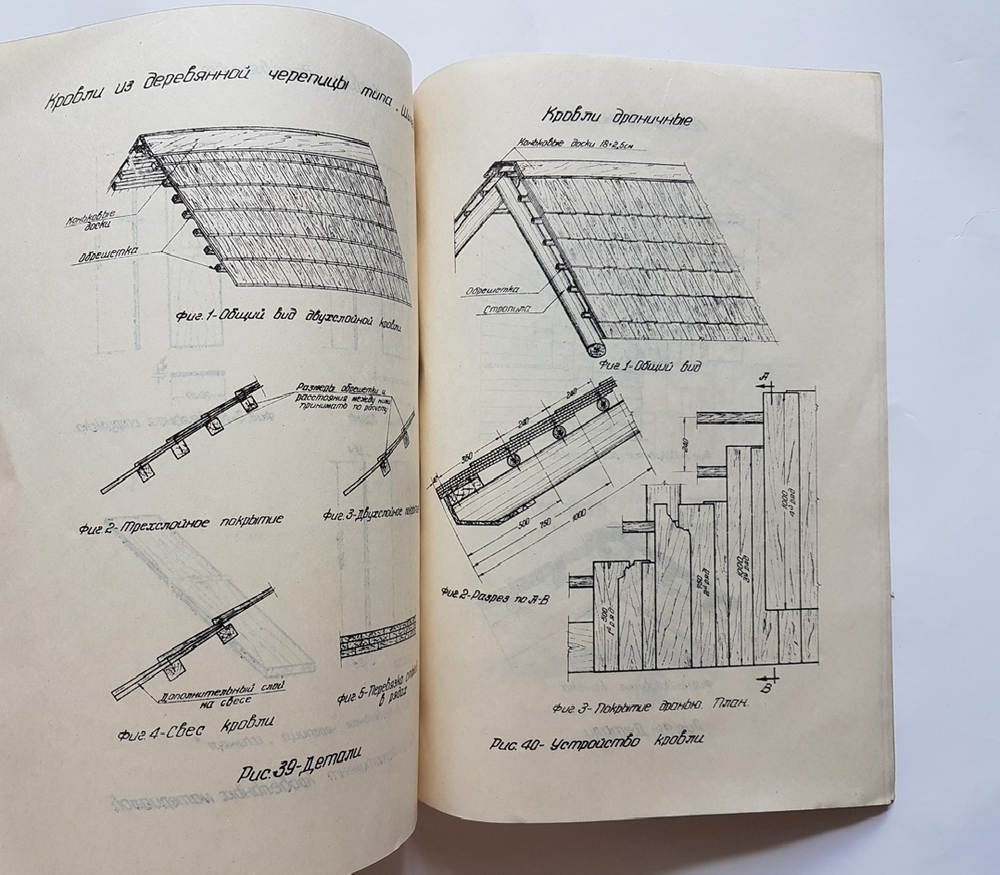 Кровли из деревянной черепицы типа
Коньковые
доски
Обрешетка
Фиг. 1-Общий вид двухслойной кровли
Размеры обрешетки и
расстояния между ними
принимать по расчету
Фиг. 2- Трехслойное покрытие
Фиг. 3-Двухслойное
Дополнительный слой
на свесе
Фиг. 4-Свес кровли
Фиг. 5-Перевязка
в рядах
Рис. 39-Детали
Кровли драничные
Коньковые доски 18*2,5см
Обрешетка
Стропила
Фиг. 1-Общий вид
240
240
350
500
750
1000
Фиг. 2-Разрез по А-В
А
240
500
1й ряд
750
2й ряд
1000
3й ряд
1000
4й ряд
В
Фиг. 3- Покрытие дранью. План.
Рис. 40- Устройство кровли